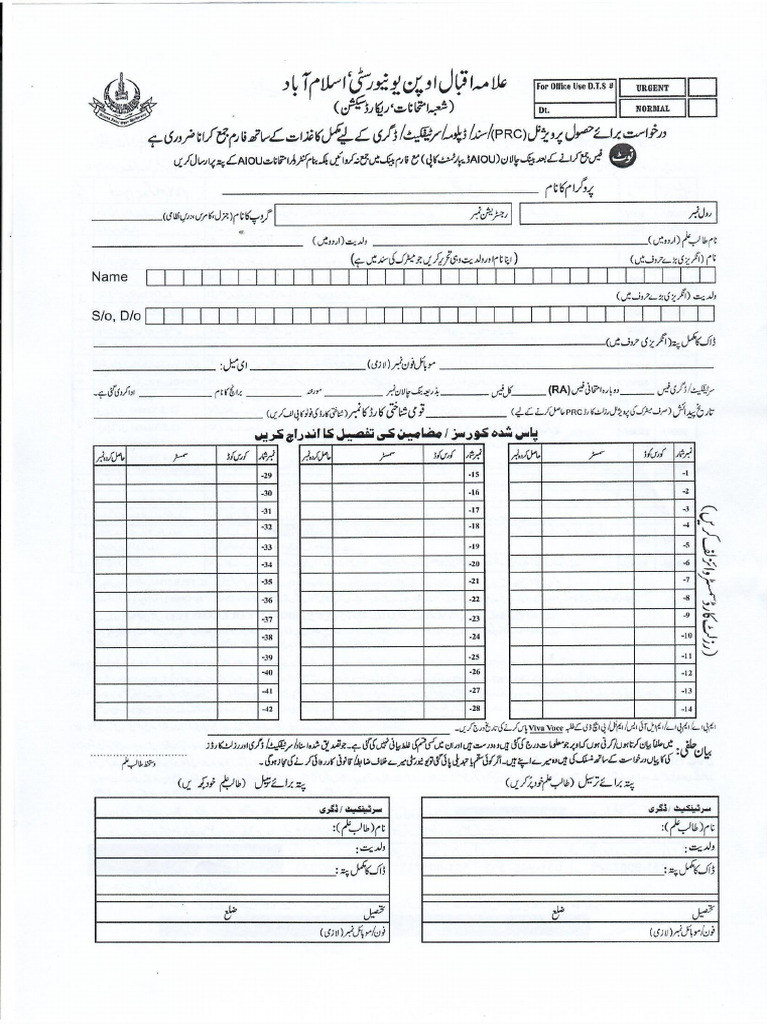 علامہ اقبال اوپن یونیورسٹی، اسلام آباد
(شعبہ امتحانات، ریکارڈ سیکشن)
For Office Use D.T.S #
Dt.
URGENT
NORMAL
درخواست برائے حصول پرویژنل (PRC)/سند/ڈپلومہ/سرٹیفکیٹ/ڈگری کے لیے مکمل کاغذات کے ساتھ فارم جمع کرانا ضروری ہے
نوٹ فیس جمع کرانے کے بعد بینک چالان (AIOU ڈیپارٹمنٹ کاپی) مع فارم بینک میں جمع نہ کروائیں بلکہ بنام کنٹرولر امتحانات AIOU کے پتہ پر ارسال کریں
پروگرام کا نام
رول نمبر
رجسٹریشن نمبر
گروپ کا نام (جنرل، کامرس، درس نظامی)
نام طالب علم (اردو میں) ولدیت (اردو میں)
نام (انگریزی بڑے حروف میں) (اپنا نام اور ولدیت وہی تحریر کریں جو میٹرک کی سند میں ہے)
Name
ولدیت (انگریزی بڑے حروف میں)
S/o, D/o
ڈاک کا مکمل پتہ (انگریزی حروف میں)
موبائل فون نمبر (لازمی) ای میل:
سرٹیفکیٹ/ڈگری فیس دوبارہ امتحانی فیس (RA) کل فیس بذریعہ بنک چالان نمبر مورخہ برانچ کا نام ادا کر دی گئی ہے۔
تاریخ پیدائش (صرف میٹرک کی پرویژنل رزلٹ کارڈ PRC حاصل کرنے کے لیے) قومی شناختی کارڈ کا نمبر (شناختی کارڈ کی فوٹو کاپی لف کریں)
پاس شدہ کورسز / مضامین کی تفصیل کا اندراج کریں
نمبر شمار کورس کوڈ سمسٹر حاصل کردہ نمبر
-1
-2
-3
-4
-5
-6
-7
-8
-9
-10
-11
-12
-13
-14
نمبر شمار کورس کوڈ سمسٹر حاصل کردہ نمبر
-15
-16
-17
-18
-19
-20
-21
-22
-23
-24
-25
-26
-27
-28
نمبر شمار کورس کوڈ سمسٹر حاصل کردہ نمبر
-29
-30
-31
-32
-33
-34
-35
-36
-37
-38
-39
-40
-41
-42
(رزلٹ کارڈ سمسٹر وائز لف کریں)
ایم بی اے/ایم پی اے/ایم ایل آئی ایس/ایم فل/پی ایچ ڈی کے طلبہ Viva Voce پاس کرنے کی تاریخ درج کریں۔
بیان حلفی: میں حلفاً بیان کرتا ہوں/کرتی ہوں کہ اوپر جو معلومات درج کی گئی ہیں وہ درست ہیں اور ان میں کسی قسم کی غلط بیانی نہیں کی گئی ہے۔ جو تصدیق شدہ اسناد/سرٹیفکیٹ/ڈگری اور رزلٹ کارڈز
کی کاپیاں درخواست کے ساتھ منسلک کی ہیں وہ میرے اپنے ہیں۔ اگر کوئی سقم یا تبدیلی پائی گئی تو یونیورسٹی میرے خلاف ضابطہ/قانونی کارروائی کرنے کی مجاز ہوگی۔
دستخط طالب علم
پتہ برائے ترسیل (طالب علم خود پُر کریں)
سرٹیفکیٹ / ڈگری
نام (طالب علم):
ولدیت:
ڈاک کا مکمل پتہ:
تحصیل ضلع
فون/موبائل نمبر (لازمی)
پتہ برائے ترسیل (طالب علم خود لکھیں)
سرٹیفکیٹ / ڈگری
نام (طالب علم):
ولدیت:
ڈاک کا مکمل پتہ:
تحصیل ضلع
فون/موبائل نمبر (لازمی)